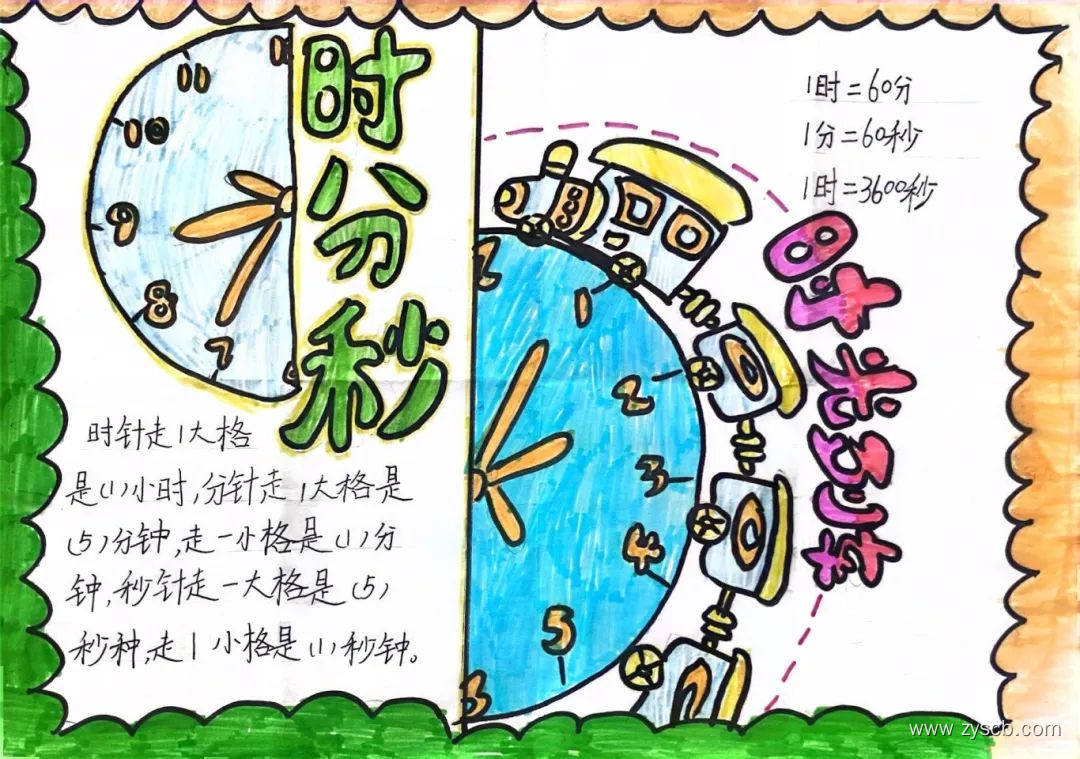 时分秒
11
10
9
8
7
时针走1大格
是(1)小时,分针走1大格是
(5)分钟,走一小格是(1)分
钟,秒针走一大格是(5)
秒种,走1小格是(1)秒钟。
1时=60分
1分=60秒
1时=3600秒
时光列车
1
2
3
4
5
www.zyscb.com